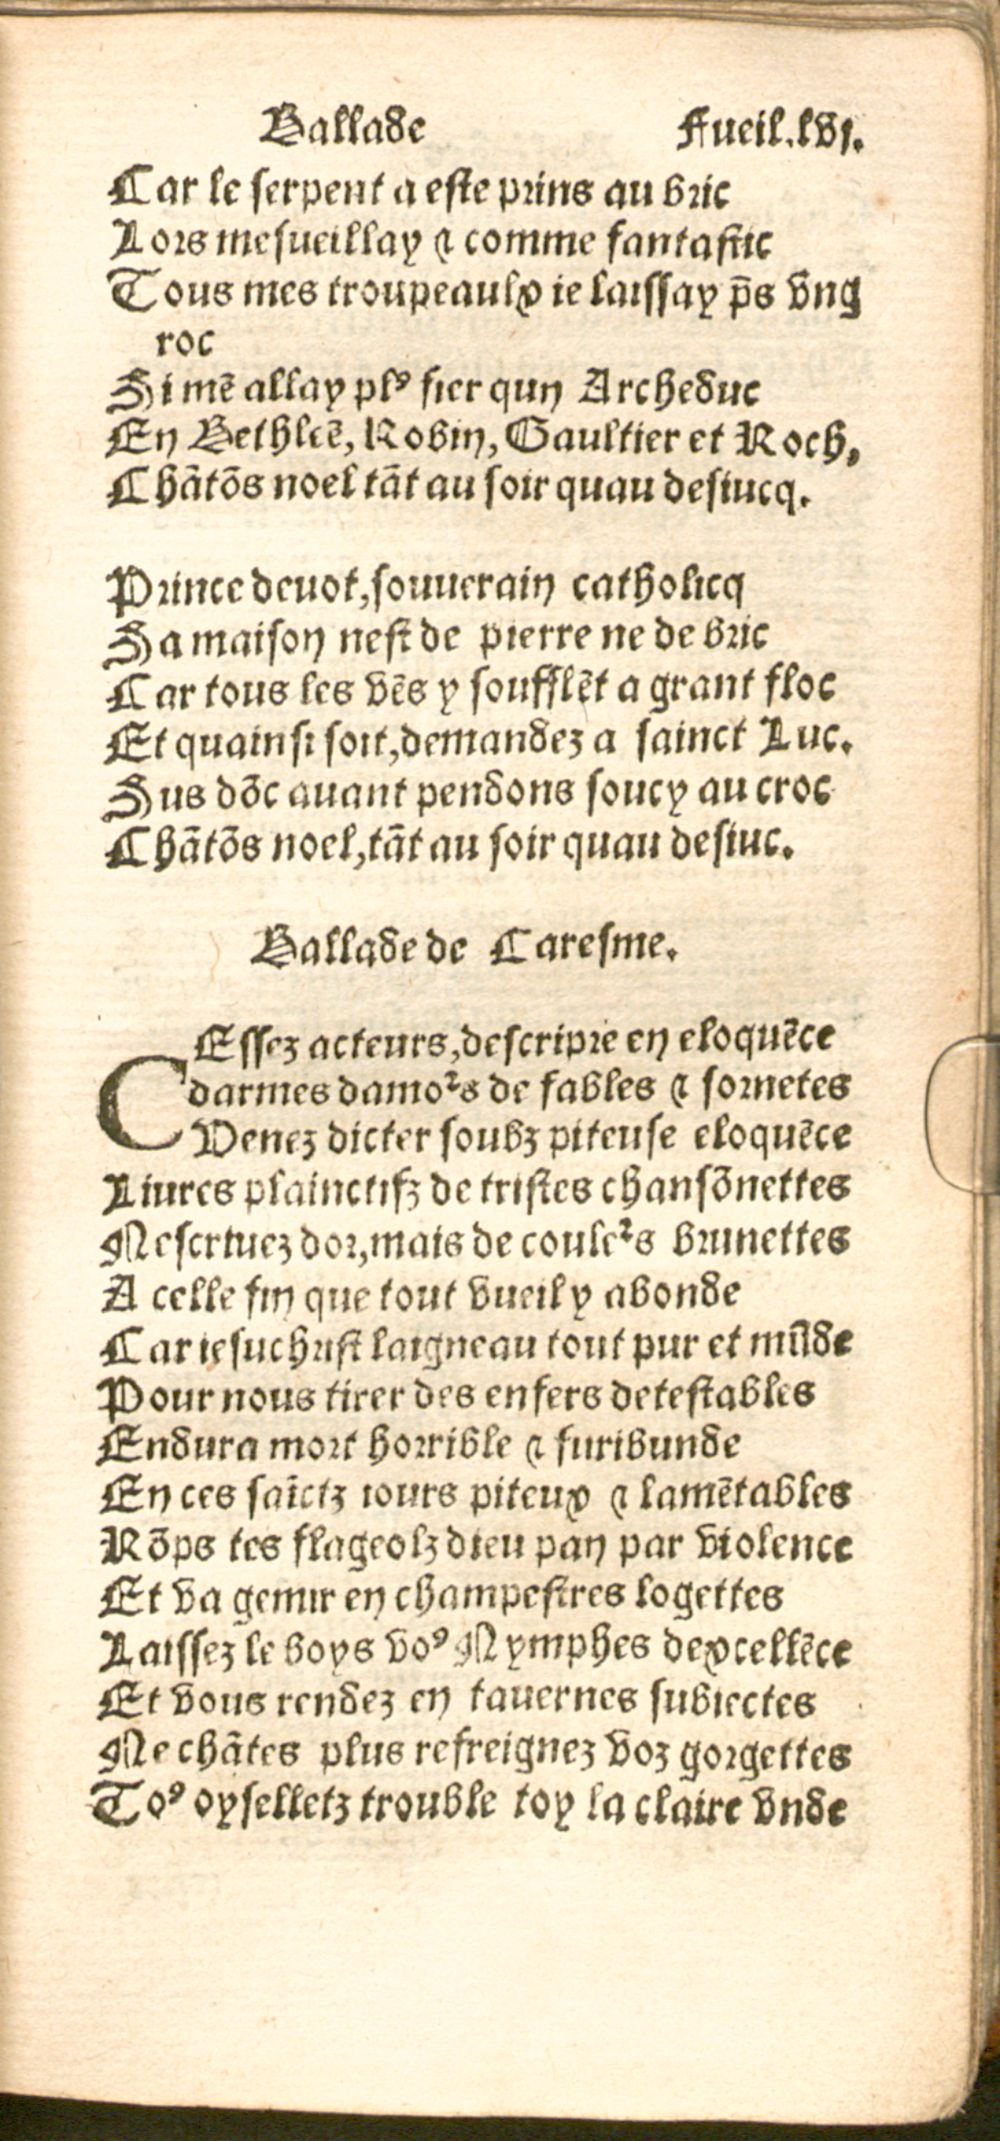 Ballade Fueil.lvj.
Car le serpent a este prins au bric
Lors mesueillay ⁊ comme fantastic
Tous mes troupeaulx ie laissay p̄s vng
roc
Si mē allay plꝰ fier qun Archeduc
En Bethleē, Robin, Gaultier et Roch,
Chātōs noel tāt au soir quau desiucq.
Prince deuot, souuerain catholicq
Sa maison nest de pierre ne de bric
Car tous les vēs y soufflēt a grant floc
Et quainsi soit, demandez a sainct Luc.
Sus dōc auant pendons soucy au croc
Chātōs noel, tāt au soir quau desiuc.
Ballade de Caresme.
CEssez acteurs, descripre en eloquēce
darmes damoꝛ̉s de fables ⁊ sornetes
Venez dicter soubz piteuse eloquēce
Liures plainctifz de tristes chansōnettes
Nescriuez dor, mais de couleꝛ̉s brunettes
A celle fin que tout vueil y abonde
Car iesuchrist laigneau tout pur et mūde
Pour nous tirer des enfers detestables
Endura mort horrible ⁊ furibunde
En ces saīctz iours piteux ⁊ lamētables
Rōps tes flageolz dieu pan par violence
Et va gemir en champestres logettes
Laissez le boys voꝰ Nymphes dexcellēce
Et vous rendez en tauernes subiectes
Ne chātes plus refreignez voz gorgettes
Toꝰ oyselletz trouble toy la claire vnde